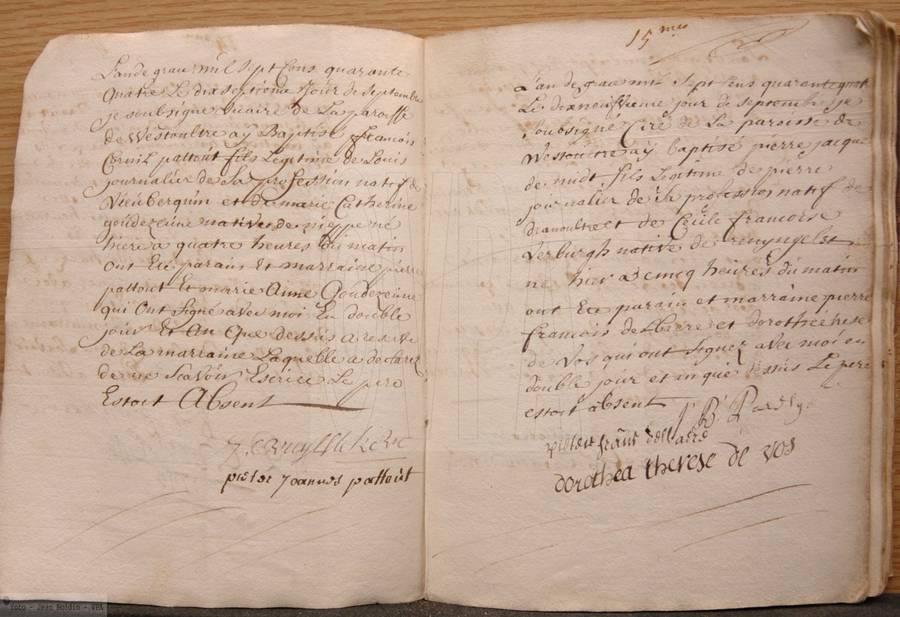 Lan de grace mil sept cens quarante
quatre Le dix septieme jour de septembre
je soubsigné Vicaire de La paroisse
de Westoultre aÿ Baptisé francois
Cornil pattout fils Legitime de Louis
journalier de Sa profession natif de
Vieuberquin et de marie Catherine
goudezeune native de nieppe né
hier a quatre heures du matin
ont Eté parain Et marraine pierre
pattout Et marie Anne Goudezeune
qui Ont Signé avec moi En double
jour Et An Que dessus a reserve
de La marraine Laquelle a declarez
de ne Scavoir Escrire Le pere
Estoit Absent
pieter Joannes pattout
15 mes
L'an de grace mil sept cens quarente quatre
Le dixneuffieme jour de septembre je
soubsigné Curé de La paroisse de
Westoutre aÿ baptisé pierre jacque
de nudt fils Legitime de pierre
journalier de sa profession natif de
dranoultre et de Cecile francoise
Verburgh native de renyngelst
né hier a cincq heures du matin
ont Eté parain et marraine pierre
francois de Baere et dorothée therese
de Vos qui ont signez avec moi en
double jour et an que dessus Le pere
estoit absent
pieter frans
dorothea therese de vos
© foto - Jean Boldin - VBK